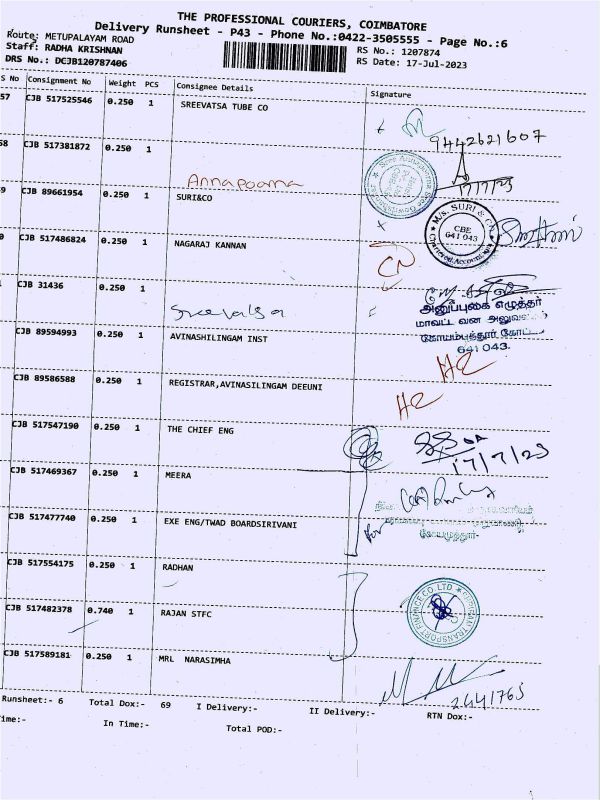 THE PROFESSIONAL COURIERS, COIMBATORE
Delivery Runsheet - P43 - Phone No.:0422-3505555 - Page No.:6
Route: METUPALAYAM ROAD
Staff: RADHA KRISHNAN
DRS No.: DCJB120787406
RS No.: 1207874
RS Date: 17-Jul-2023
S No Consignment No Weight PCS Consignee Details Signature
57 CJB 517525546 0.250 1 SREEVATSA TUBE CO
9442621607
58 CJB 517381872 0.250 1 Annapoorna
17/7/23
9 CJB 89661954 0.250 1 SURI&CO
M/s. SURI & CO
CBE
641 043
Chartered Accountants
0 CJB 517486824 0.250 1 NAGARAJ KANNAN
CN
CJB 31436 0.250 1 Sreevatsa
அனுப்புகை எழுத்தர்
மாவட்ட வன அலுவ
கோயம்புத்தூர் கோட்
641 043.
CJB 89594993 0.250 1 AVINASHILINGAM INST
CJB 89586588 0.250 1 REGISTRAR,AVINASILINGAM DEEUNI
CJB 517547190 0.250 1 THE CHIEF ENG
17/7/23
CJB 517469367 0.250 1 MEERA
CJB 517477740 0.250 1 EXE ENG/TWAD BOARDSIRIVANI
for
கோயமுத்தூர்-
CJB 517554175 0.250 1 RADHAN
CJB 517482378 0.740 1 RAJAN STFC
TRANSPORT FINANCE CO LTD
CJB 517589181 0.250 1 MRL NARASIMHA
2441763
Runsheet:- 6 Total Dox:- 69 I Delivery:- II Delivery:- RTN Dox:-
ime:- In Time:- Total POD:-